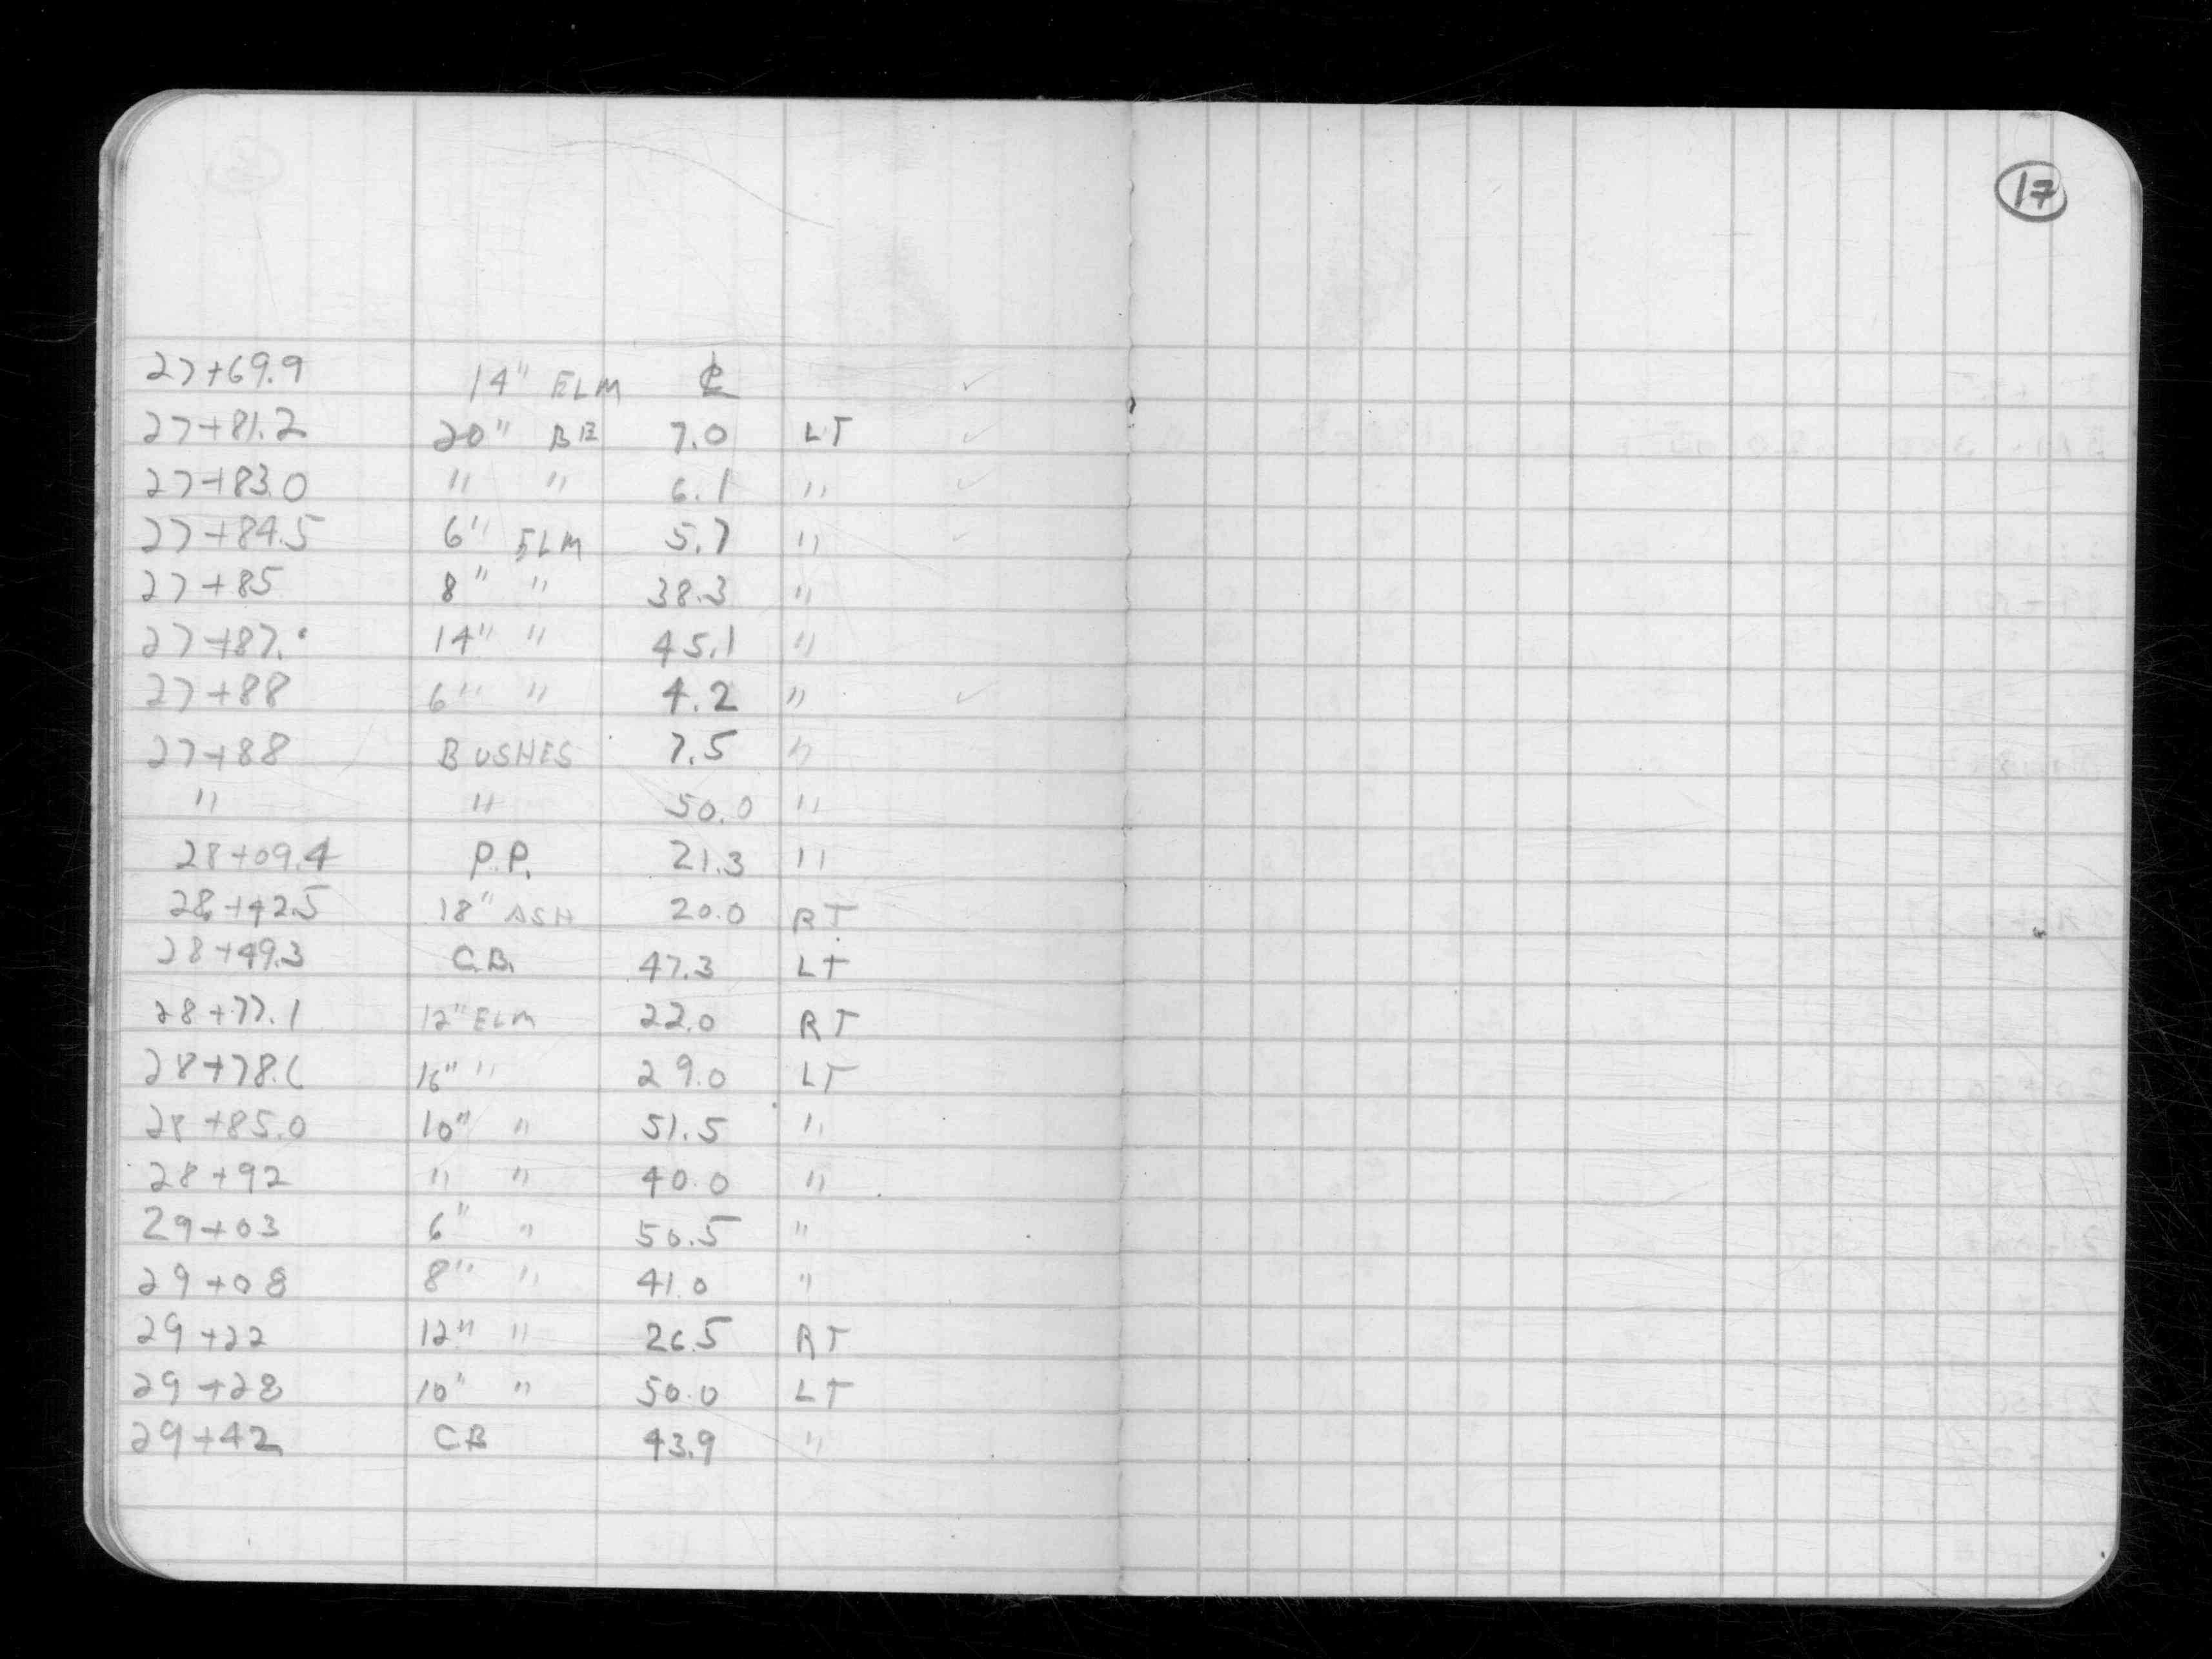 17
27+69.9 14" ELM ℄ ✓
27+81.2 20" BE 7.0 LT ✓
27+83.0 " " 6.1 " ✓
27+84.5 6" ELM 5.7 " ✓
27+85 8" " 38.3 "
27+87.0 14" " 45.1 "
27+88 6" " 4.2 " ✓
27+88 BUSHES 7.5 "
" " 50.0 "
28+09.4 P.P. 21.3 "
28+42.5 18" ASH 20.0 RT
28+49.3 C.B. 47.3 LT
28+77.1 12" ELM 22.0 RT
28+78.6 16" " 29.0 LT
28+85.0 10" " 51.5 "
28+92 " " 40.0 "
29+03 6" " 50.5 "
29+08 8" " 41.0 "
29+22 12" " 26.5 RT
29+28 10" " 50.0 LT
29+42 CB 43.9 "